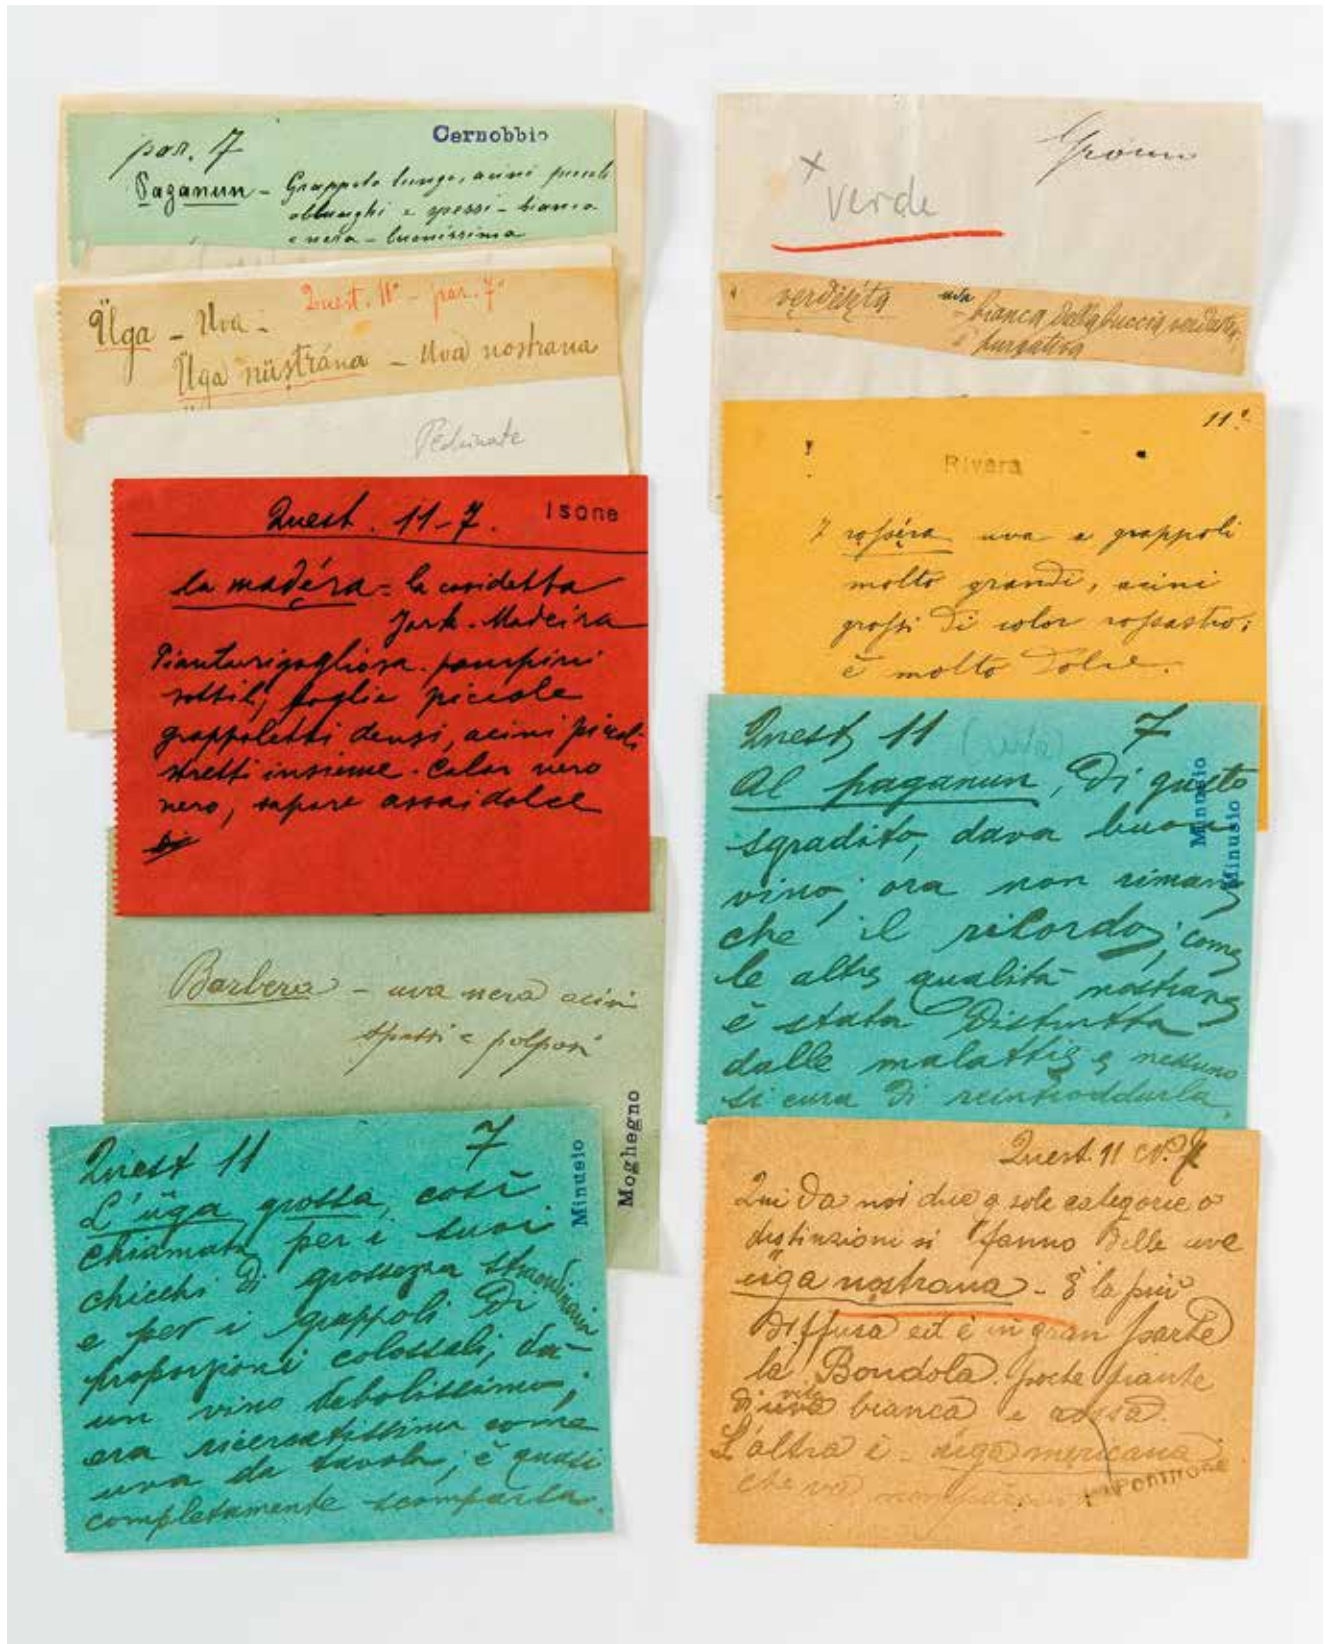 Cernobbio
par. 7
Paganun - Grappolo lungo, acini piccoli
oblunghi e spessi - bianca
e nera - buonissima
Quest. 11° - par. 7°
Üga - Uva -
Üga nüstrána - Uva nostrana
Pedrinate
Quest. 11-7. Isone
la madéra = la cosidetta
York-Madeira
Pianta rigogliosa. pampini
sottili, foglie piccole
grappoletti densi, acini piccoli
stretti insieme. Color nero
nero, sapore assai dolce
Barbera - uva nera acini
spessi e polposi
Moghegno
Quest 11 7
Minusio
L'üga grossa, così
chiamata per i suoi
chicchi di grossezza straordinaria
e per i grappoli di
proporzioni colossali, da
un vino debolissimo;
era ricercatissima come
uva da tavola; è quasi
completamente scomparsa.
Grono
x
verde
verdisẹta uva bianca dalla buccia verdastra,
è purgativa
11°
Rivera
7 rosséra uva a grappoli
molto grandi, acini
grossi di color rossastro;
è molto dolce.
Quest 11 (uva) 7
Al paganun, di gusto
sgradito, dava buon
vino; ora non rimane
che il ricordo; come
le altre qualità nostrane
è stata distrutta
dalle malattie e nessuno
si cura di reintrodurla.
Minusio
Minusio
Quest. 11 N. 7
Qui da noi due sole categorie o
distinzioni si fanno delle uve
üga nostrana - È la più
diffusa ed è in gran parte
la Bondola. poche piante
di vite bianca e rossa.
L'altra è - üga mericana
che va
Pontirone